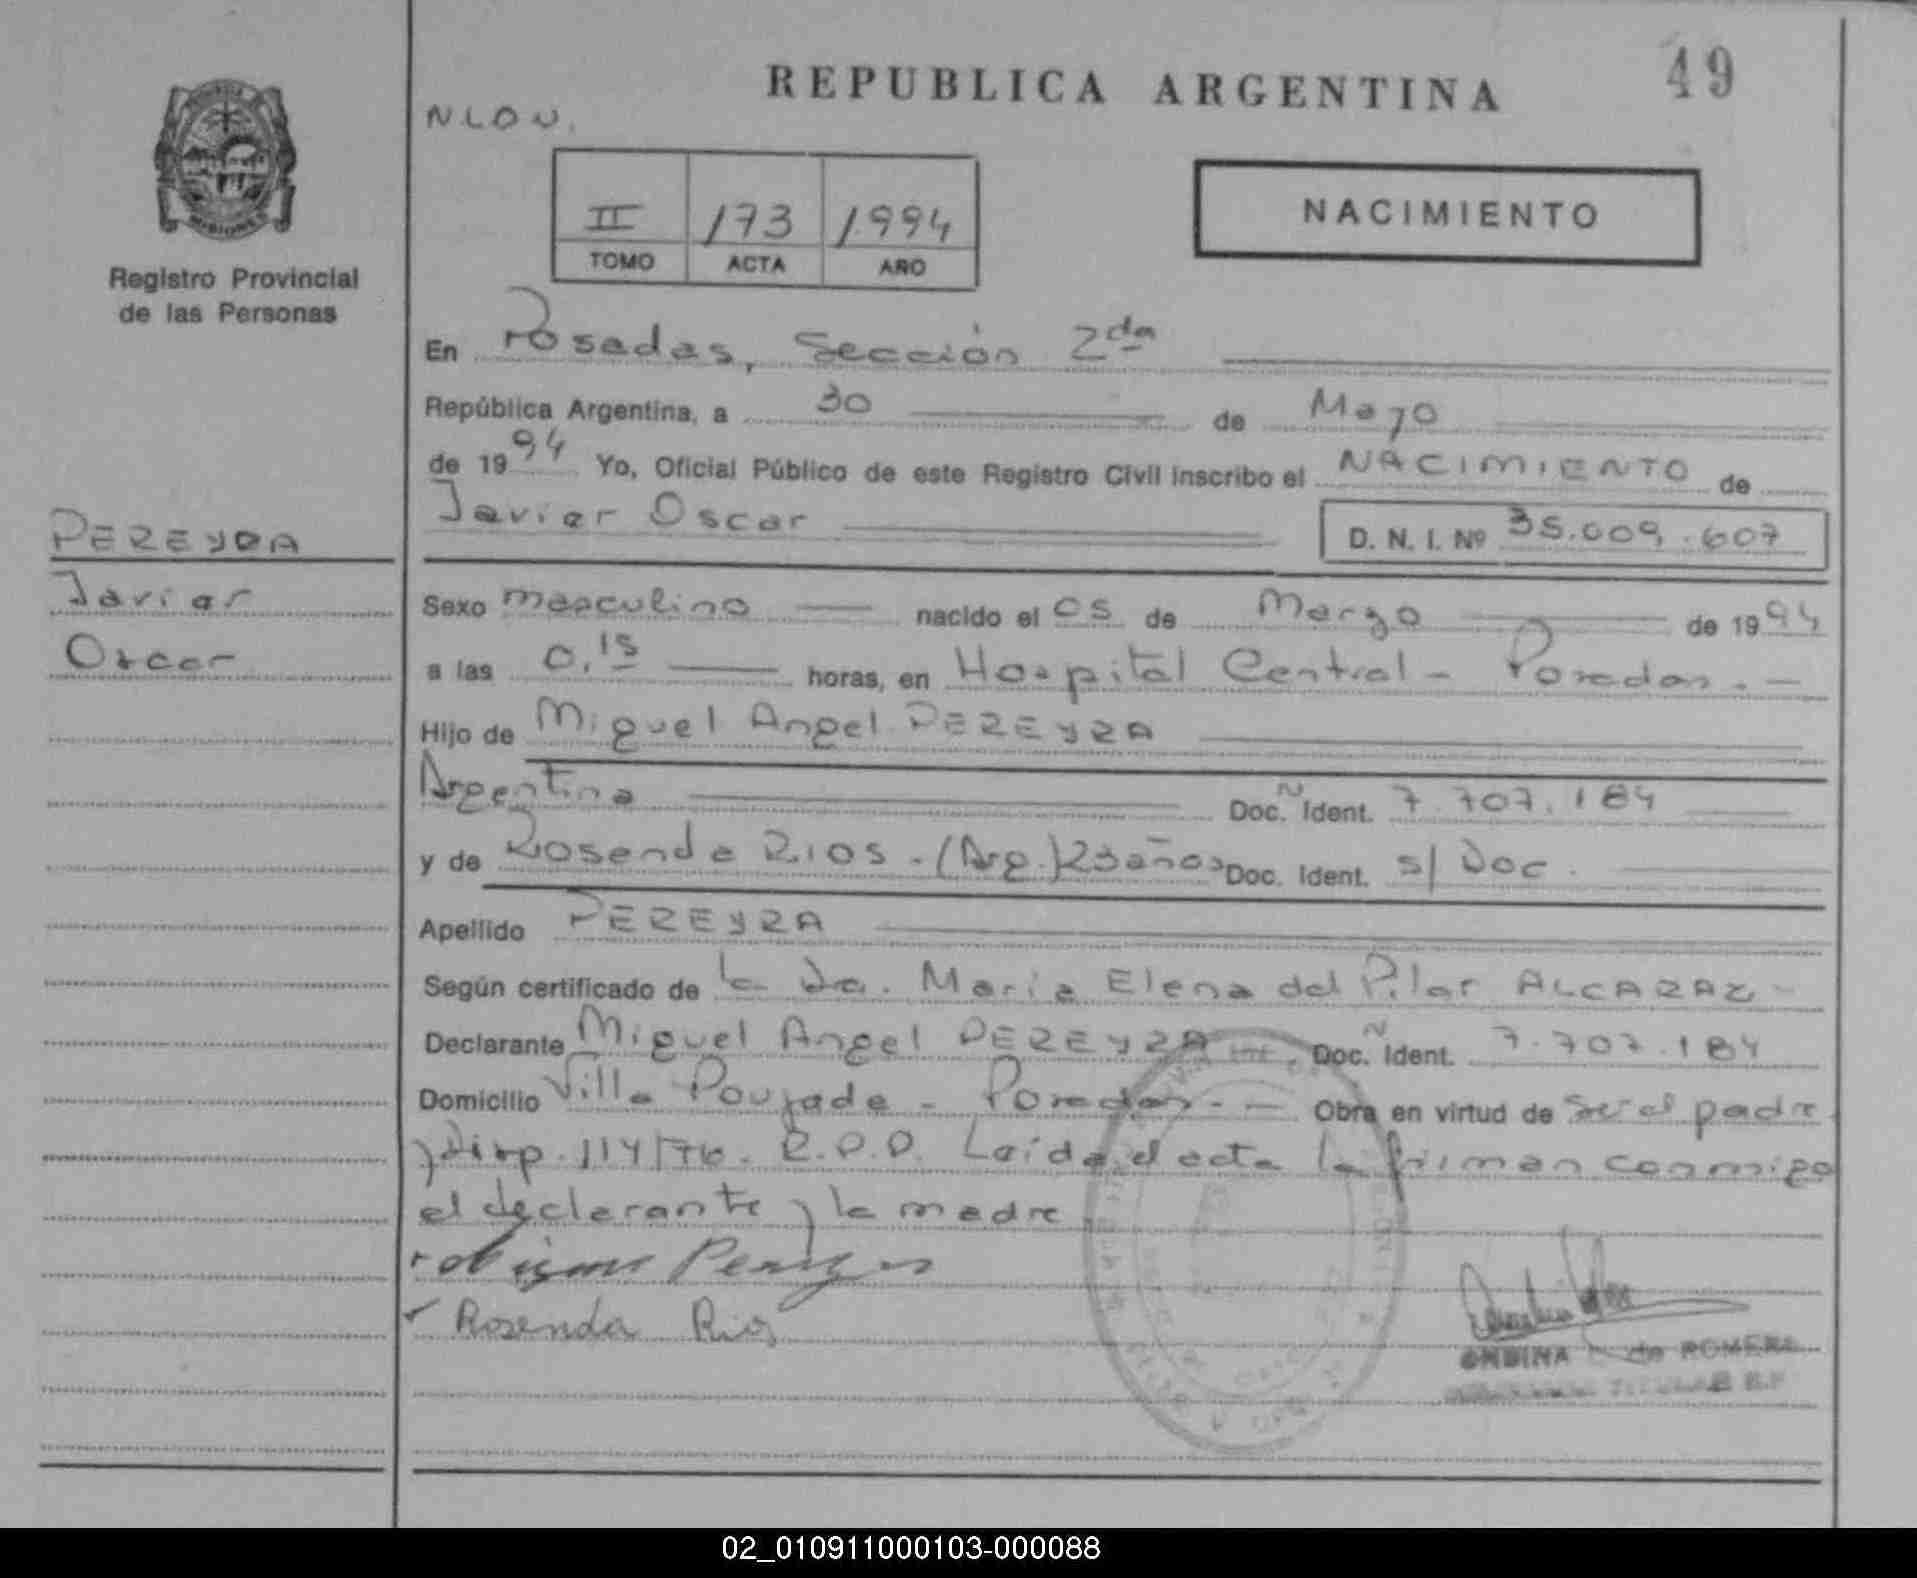 REPUBLICA ARGENTINA
49
NLON.
II 173 1994
TOMO ACTA AÑO
NACIMIENTO
Registro Provincial
de las Personas
PEREYRA
Javier
Oscar
En Posadas, Sección 2da
República Argentina, a 30 de Mayo
de 1994 Yo, Oficial Público de este Registro Civil inscribo el NACIMIENTO de
Javier Oscar D. N. I. Nº 35.009.607
Sexo masculino nacido el 05 de Marzo de 1994
a las 0,15 horas, en Hospital Central - Posadas. -
Hijo de Miguel Angel PEREYRA
Argentina Doc. Ñ Ident. 7.707.184
y de Rosenda RIOS - (Arg.) 23 años Doc. Ident. s/ Doc.
Apellido PEREYRA
Según certificado de la Dra. María Elena del Pilar ALCARAZ -
Declarante Miguel Angel PEREYRA Doc. Ñ Ident. 7.707.184
Domicilio Villa Poujade - Posadas. - Obra en virtud de ser el padre
y Disp. 114/76. R.P.P. Leída el acta la firman conmigo
el declarante y la madre
Pereyra
Rosenda Rios
ONDINA de ROMERO
TITULAR
02_010911000103-000088